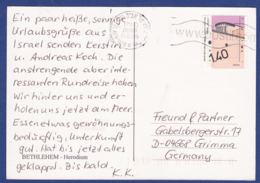 Ein paar heiße, sonnige
Urlaubsgrüße aus
Israel senden Kerstin
u. Andreas Koch. Die
anstrengende aber inte-
ressanten Rundreise haben
Wir hinter uns und er-
holen uns jetzt am Meer.
Essen etwas gewöhnungs-
bedürftig, Unterkunft
gut. Hat bis jetzt alles
geklappt. Bis bald.
K.K.
BETHLEHEM - Herodium
www.
1.40
Freund & Partner
Gabelsbergerstr. 17
D-04668 Grimma
Germany